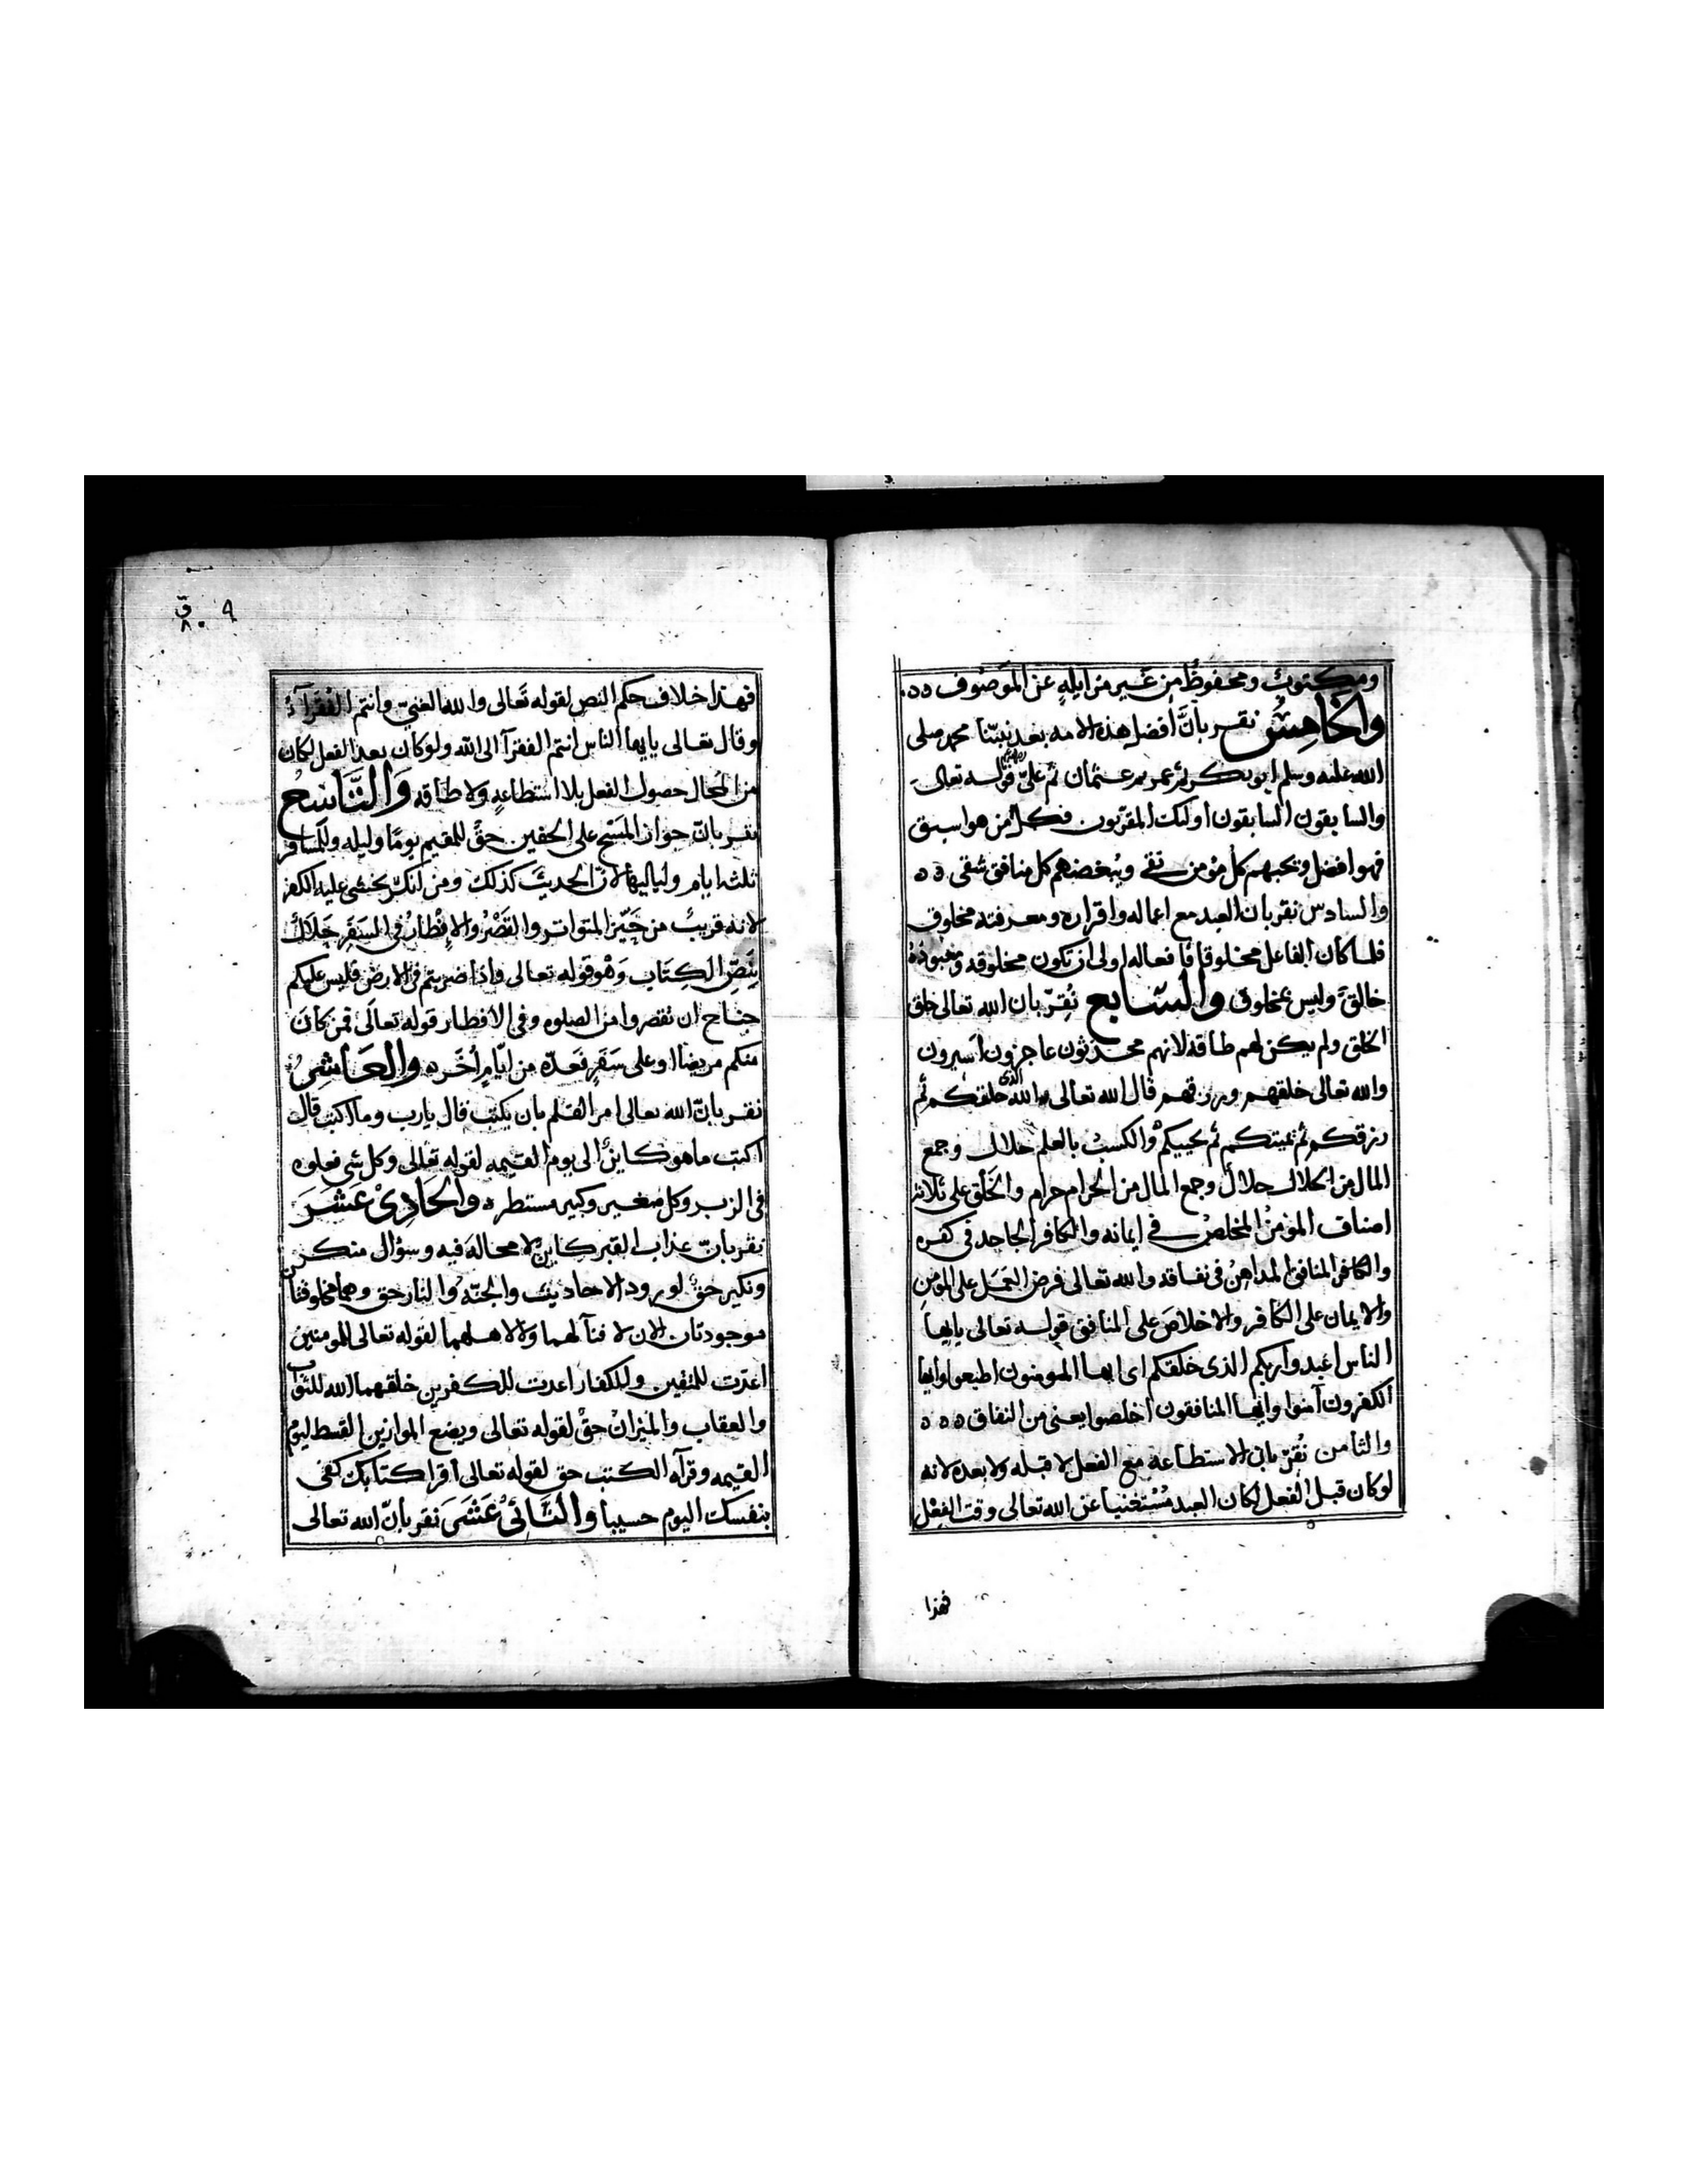 ومكتوب ومحفوظ من غير مزايلة عن الموصوف ٥٥
والخامس نقر بان أفضل هذه الامه بعد نبينا محمد صلى
الله عليه وسلم ابو بكر ثم عمر ثم عثمان ثم على قوله تعالى
والسابقون السابقون اولئك المقربون فكل من هو اسبق
فهو افضل ويحبهم كل مؤمن تقى ويبغضهم كل منافق شقى ٥٥
والسادس نقر بان العبد مع اعماله واقراره ومعرفته مخلوق
فلما كان الفاعل مخلوقا فافعاله اولى ان تكون مخلوقه
خالق وليس بمخلوق والسابع نقر بان الله تعالى خلق
الخلق ولم يكن لهم طاقه لانهم محدثون عاجزون اسيرون
والله تعالى خلقهم ورزقهم قال الله تعالى الله الذى خلقكم ثم
رزقكم ثم يميتكم ثم يحييكم والكسب بالعلم حلال وجمع
المال من الحلال حلال وجمع المال من الحرام حرام والخلق على ثلاثة
اصناف المؤمن المخلص فى ايمانه والكافر الجاحد فى كفره
والكافر المنافق المداهن فى نفاقه والله تعالى فرض العمل على المؤمن
والايمان على الكافر والاخلاص على المنافق قوله تعالى يايها
الناس اعبدوا ربكم الذى خلقكم اى ايها المومنون اطيعوا وايها
الكفرون آمنوا وايها المنافقون اخلصوا يعنى من النفاق ٥٥٥
والثامن نقر بان الاستطاعة مع الفعل لا قبله ولا بعده لانه
لو كان قبل الفعل لكان العبد مستغنيا عن الله تعالى وقت الفعل
فهذا
٩ ق
٨٠
فهذا خلاف حكم النص لقوله تعالى والله الغنى وانتم الفقرآء
وقال تعالى يايها الناس انتم الفقرآ الى الله ولو كان بعد الفعل لكان
من المحال حصول الفعل بلا استطاعه ولا طاقه والتاسع
نقر بان جواز المسح على الخفين حق للمقيم يوما وليله وللمسافر
ثلثه ايام ولياليها لان الحديث كذلك ومن انكر يخشى عليه الكفر
لانه قريب من حيز المتواتر والقصر والافطار فى السفر حلال
بنص الكتاب وهو قوله تعالى واذا ضربتم فى الارض فليس عليكم
جناح ان تقصروا من الصلوه وفى الافطار قوله تعالى فمن كان
منكم مريضا او على سفر فعدة من ايام أخر ٥ والعاشر
نقر بان الله تعالى امر القلم بان يكتب قال يارب وما اكتب قال
اكتب ما هو كاين الى يوم القيمه لقوله تعالى وكل شى فعلوه
فى الزبر وكل صغير وكبير مستطر ٥ والحادى عشر
نقر بان عذاب القبر كاين لا محالة فيه وسؤال منكر
ونكير حق لورود الاحاديث والجنة والنار حق وهما مخلوقتان
موجودتان الان لا فنآ لهما ولا لاهلهما لقوله تعالى للمومنين
اعدت للمتقين وللكفار اعدت للكفرين خلقهما الله للثواب
والعقاب والميزان حق لقوله تعالى ويضع الموازين القسط ليوم
القيمه وقرآه الكتب حق لقوله تعالى اقرا كتابك كفى
بنفسك اليوم حسيبا والثانى عشر نقر بان الله تعالى